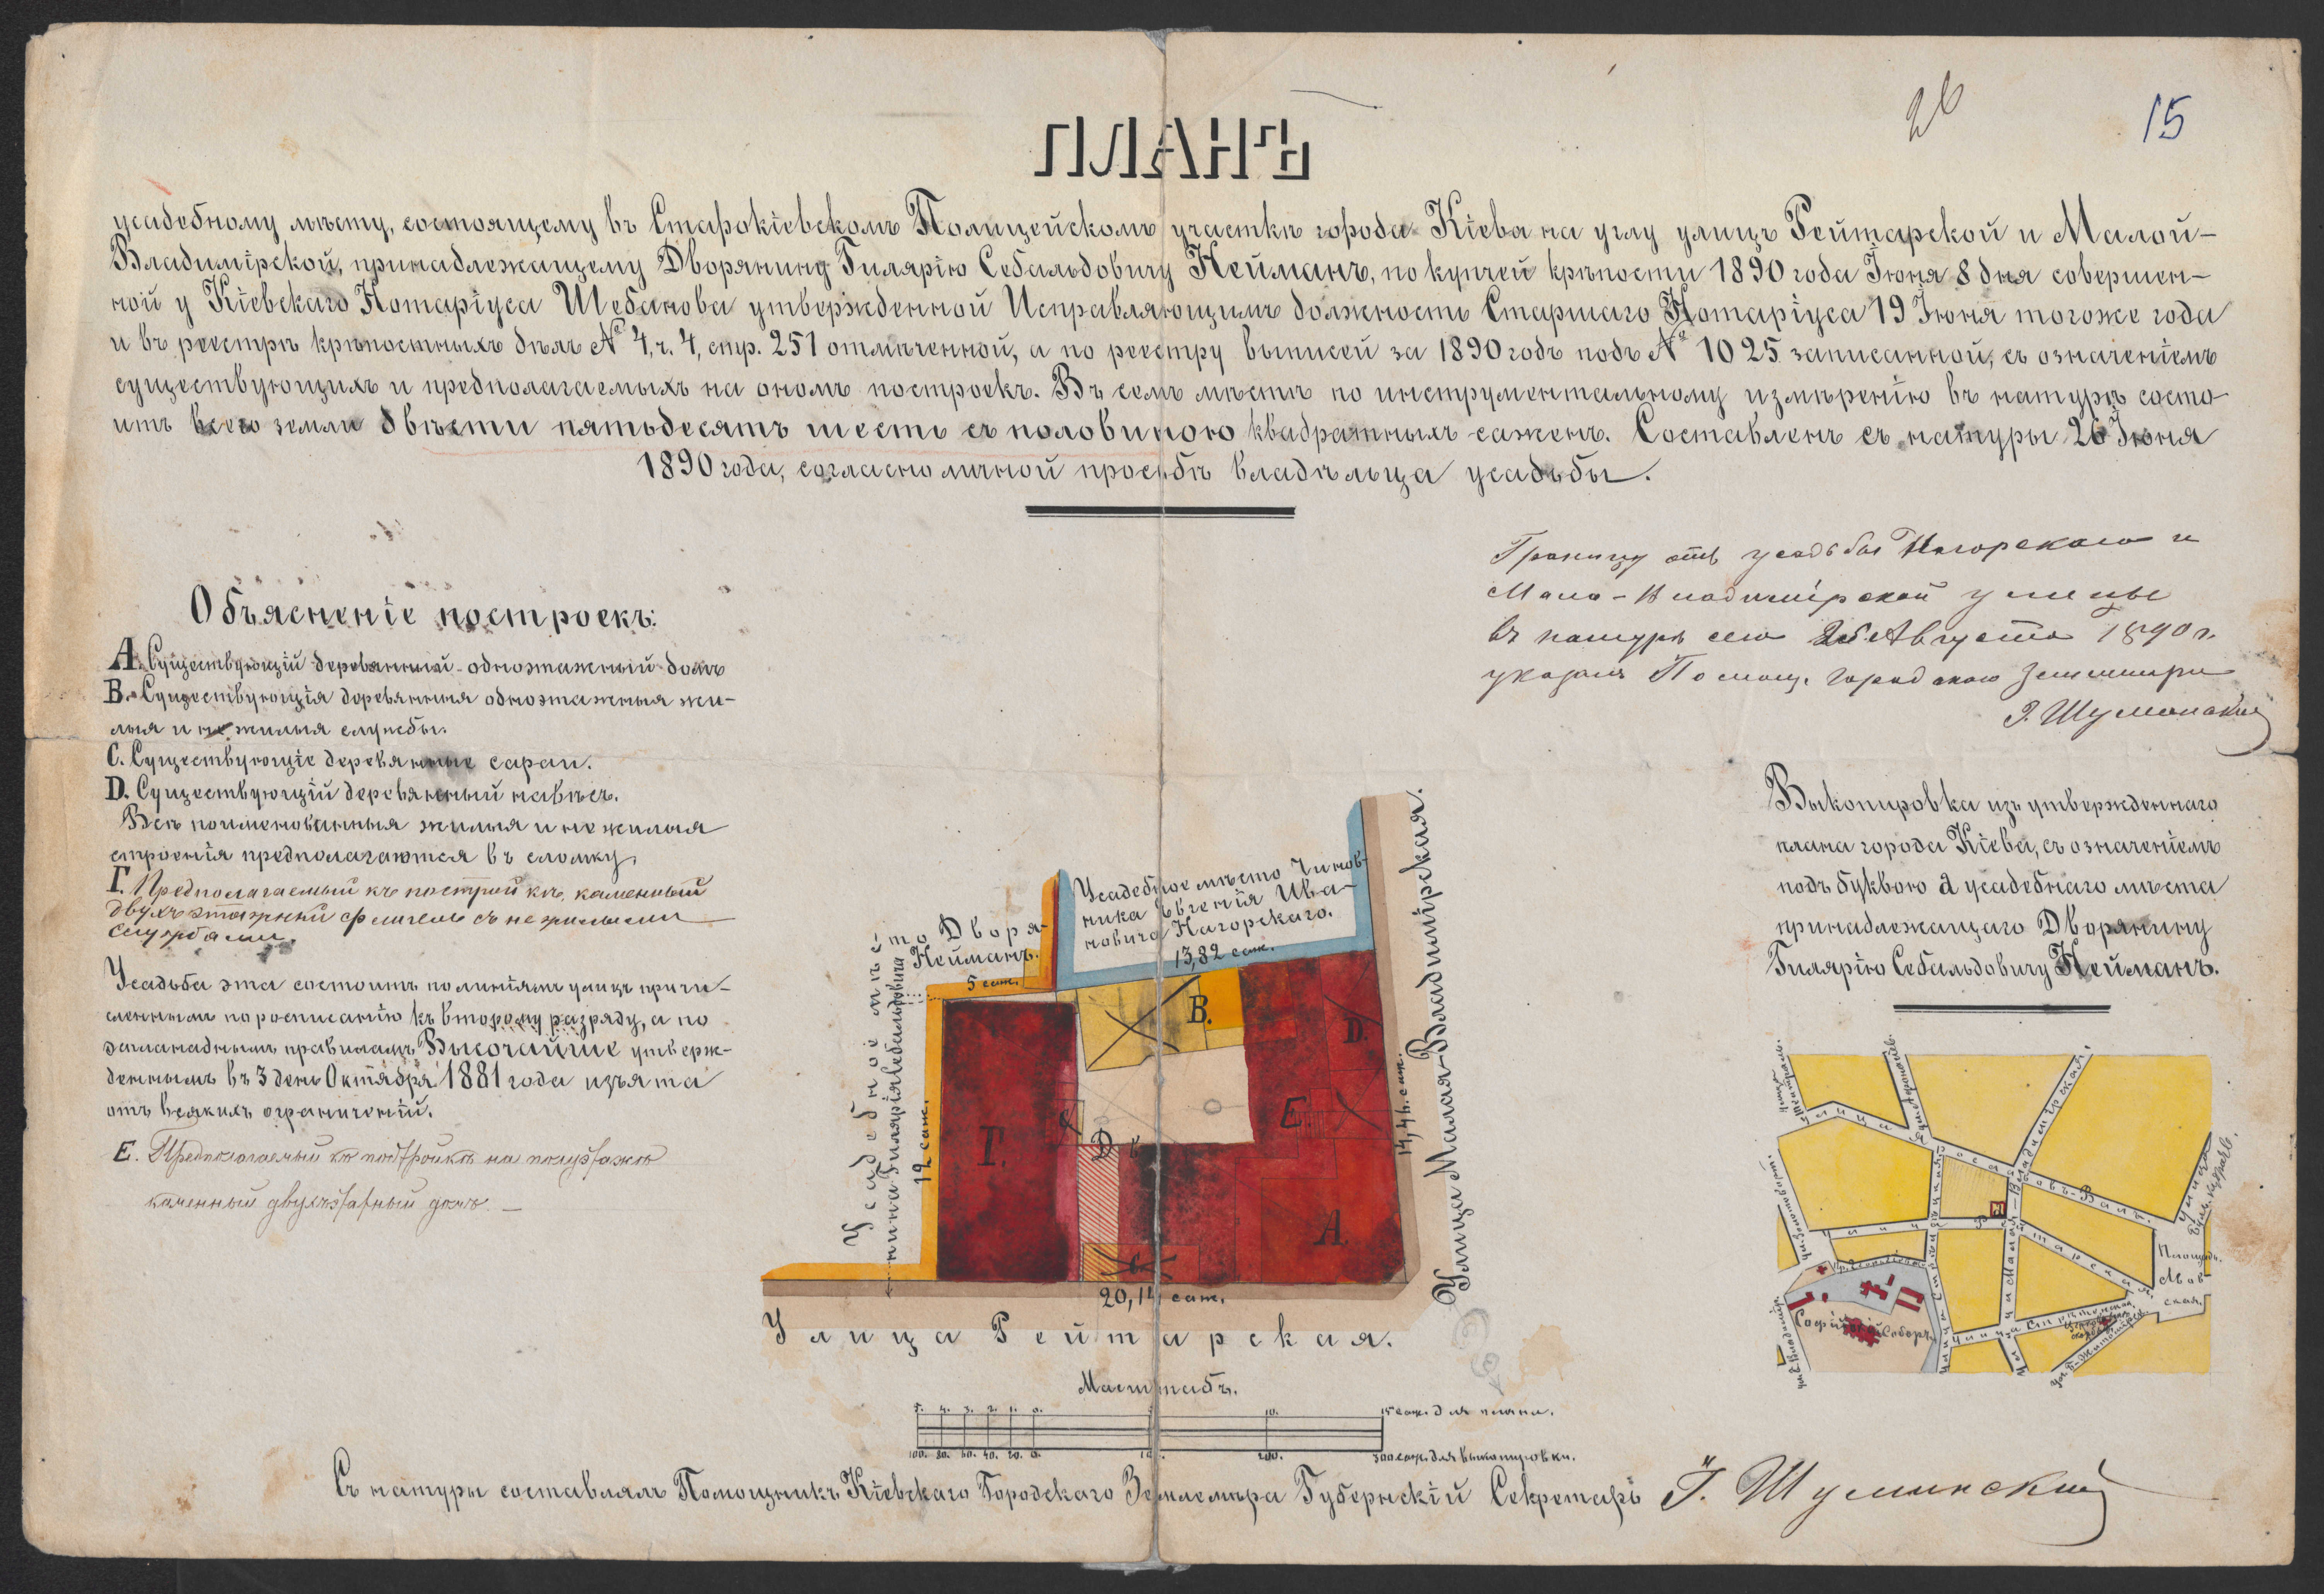 26
15
ПЛАНЪ
усадебному мѣсту, состоящему въ Старокіевскомъ Полицейскомъ участкѣ города Кіева на углу улицъ Рейтарской и Малой-
Владимірской, принадлежащему Дворянину Гилярію Себальдовичу Нейманъ, по купчей крѣпости 1890 года Іюня 8 дня совершен-
ной у Кіевскаго Нотаріуса Шебанова утвержденной Исправляющимъ должность Старшаго Нотаріуса 19 Іюня тогоже года
и въ реестрѣ крѣпостныхъ дѣлъ № 4, ч. 4, стр. 251 отмѣченной, а по реестру выписей за 1890 годъ подъ № 1025 записанной, съ означеніемъ
существующихъ и предполагаемыхъ на ономъ построекъ. Въ семъ мѣстѣ по инструментальному измѣренію въ натурѣ состо-
итъ всего земли двѣсти пятьдесятъ шесть съ половиною квадратныхъ сажень. Составленъ съ натуры 26 Іюня
1890 года, согласно личной просьбѣ владѣльца усадьбы.
Границу отъ усадьбы Нагорскаго и
Мало-Владимірской улицы
въ натурѣ сего 25 Августа 1890 г.
указалъ Помощ. Городского Землемѣра
Г. Шуманскій
Объясненіе построекъ:
А. Существующій деревянный одноэтажный домъ
В. Существующія деревянныя одноэтажныя жи-
лыя и нежилыя службы.
С. Существующіе деревянные сараи.
D. Существующій деревянный навѣсъ.
Всѣ поименованныя жилыя и нежилыя
строенія предполагаются въ сломку.
Г. Предполагаемый къ постройкѣ, каменный
двухъэтажный флигель съ нежилыми
службами.
Усадьба эта состоитъ по линіямъ улицъ причи-
сленнымъ по росписанію къ второму разряду, а по
эспланаднымъ правиламъ Высочайше утверж-
деннымъ въ 3 день Октября 1881 года изъята
отъ всякихъ ограниченій.
Е. Предпологаемый къ постройкѣ на полуэтажѣ
каменный двухъэтажный домъ.
Выкопировка изъ утвержденнаго
плана города Кіева, съ означеніемъ
подъ буквою а усадебнаго мѣста
принадлежащаго Дворянину
Гилярію Себальдовичу Нейманъ.
Усадебное мѣсто Чинов-
ника Евгенія Ива-
новича Нагорскаго.
13,82 саж.
Усадебное мѣсто Дворя-
нина Гилярія Себальдовича Нейманъ.
5 саж.
12 саж.
14,46. саж.
20,14 саж.
В.
D.
С
D
Е.
Г.
А.
Улица Малая-Владимірская.
Улица Рейтарская.
Масштабъ.
5. 4. 3. 2. 1. 0. 5 10. 15 саж. для плана.
100. 80. 60. 40. 20. 0. 100. 200. 300 саж. для выкопировки.
Улица
Ярославовъ-Валъ.
Улица Рейтарская.
Улица Малая-Владимірская.
Улица Стрѣлецкая
Площадь
Львов-
ская.
Софійскій Соборъ
Улица Срѣтенская.
Съ натуры составлялъ Помощникъ Кіевскаго Городскаго Землемѣра Губернскій Секретарь Г. Шуманскій